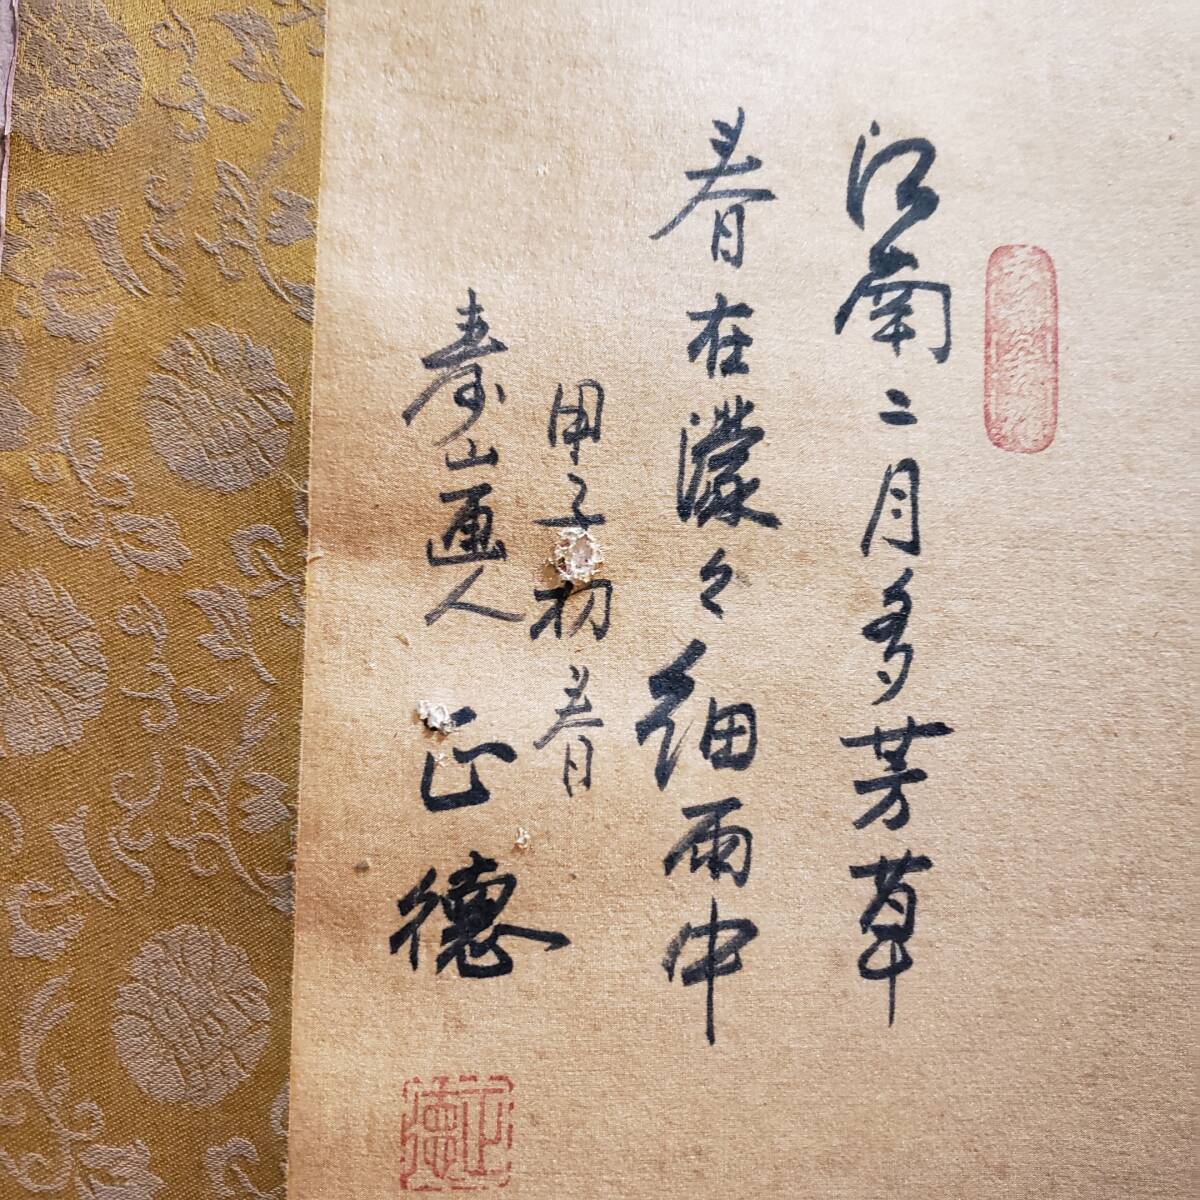 江南二月多芳草
春在濛々細雨中
甲子初春
寿山画人
正徳
正徳